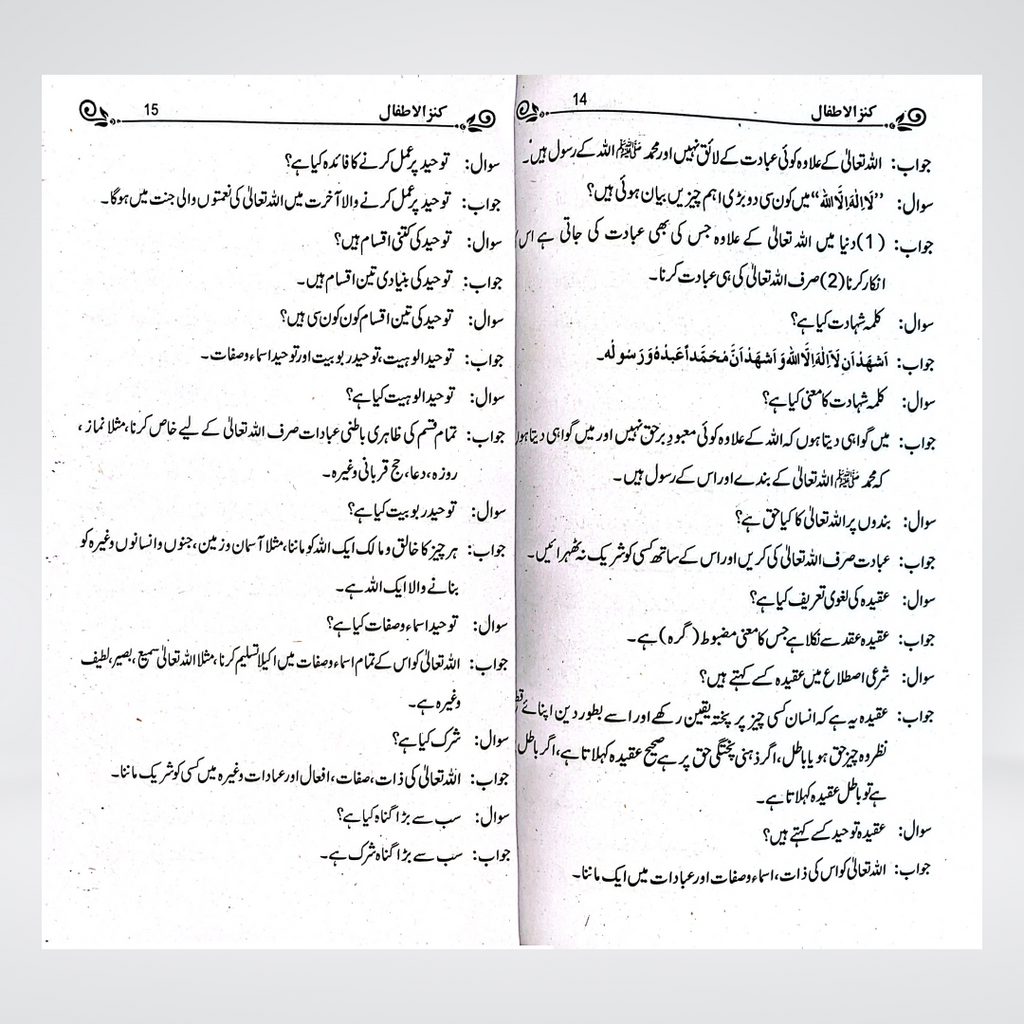 کنز الاطفال 14
جواب: اللہ تعالیٰ کے علاوہ کوئی عبادت کے لائق نہیں اور محمد ﷺ اللہ کے رسول ہیں۔
سوال: ”لَا اِلٰہَ اِلَّا اللہ“ میں کون سی دو بڑی اہم چیزیں بیان ہوئی ہیں؟
جواب: (1) دنیا میں اللہ تعالیٰ کے علاوہ جس کی بھی عبادت کی جاتی ہے اس
انکار کرنا (2) صرف اللہ تعالیٰ کی ہی عبادت کرنا۔
سوال: کلمہ شہادت کیا ہے؟
جواب: اَشْهَدُ اَنْ لَّا اِلٰهَ اِلَّا اللهُ وَ اَشْهَدُ اَنَّ مُحَمَّداً عَبْدُهٗ وَ رَسُولُه۔
سوال: کلمہ شہادت کا معنی کیا ہے؟
جواب: میں گواہی دیتا ہوں کہ اللہ کے علاوہ کوئی معبود برحق نہیں اور میں گواہی دیتا ہوں
کہ محمد ﷺ اللہ تعالیٰ کے بندے اور اس کے رسول ہیں۔
سوال: بندوں پر اللہ تعالیٰ کا کیا حق ہے؟
جواب: عبادت صرف اللہ تعالیٰ کی کریں اور اس کے ساتھ کسی کو شریک نہ ٹھہرائیں۔
سوال: عقیدہ کی لغوی تعریف کیا ہے؟
جواب: عقیدہ عقد سے نکلا ہے جس کا معنی مضبوط (گرہ) ہے۔
سوال: شرعی اصطلاح میں عقیدہ کسے کہتے ہیں؟
جواب: عقیدہ یہ ہے کہ انسان کسی چیز پر پختہ یقین رکھے اور اسے بطور دین اپنائے
نظر وہ چیز حق ہو یا باطل، اگر ذہنی پختگی حق پر ہے صحیح عقیدہ کہلاتا ہے، اگر باطل
ہے تو باطل عقیدہ کہلاتا ہے۔
سوال: عقیدہ توحید کسے کہتے ہیں؟
جواب: اللہ تعالیٰ کو اس کی ذات، اسماء و صفات اور عبادات میں ایک ماننا۔
کنز الاطفال 15
سوال: توحید پر عمل کرنے کا فائدہ کیا ہے؟
جواب: توحید پر عمل کرنے والا آخرت میں اللہ تعالیٰ کی نعمتوں والی جنت میں ہوگا۔
سوال: توحید کی کتنی اقسام ہیں؟
جواب: توحید کی بنیادی تین اقسام ہیں۔
سوال: توحید کی تین اقسام کون کون سی ہیں؟
جواب: توحید الوہیت، توحید ربوبیت اور توحید اسماء و صفات۔
سوال: توحید الوہیت کیا ہے؟
جواب: تمام قسم کی ظاہری باطنی عبادات صرف اللہ تعالیٰ کے لیے خاص کرنا، مثلا نماز،
روزہ، دعا، حج قربانی وغیرہ۔
سوال: توحید ربوبیت کیا ہے؟
جواب: ہر چیز کا خالق و مالک ایک اللہ کو ماننا، مثلا آسمان و زمین، جنوں و انسانوں وغیرہ کو
بنانے والا ایک اللہ ہے۔
سوال: توحید اسماء و صفات کیا ہے؟
جواب: اللہ تعالیٰ کو اس کے تمام اسماء و صفات میں اکیلا تسلیم کرنا، مثلا اللہ تعالیٰ سمیع، بصیر، لطیف
وغیرہ ہے۔
سوال: شرک کیا ہے؟
جواب: اللہ تعالیٰ کی ذات، صفات، افعال اور عبادات وغیرہ میں کسی کو شریک ماننا۔
سوال: سب سے بڑا گناہ کیا ہے؟
جواب: سب سے بڑا گناہ شرک ہے۔